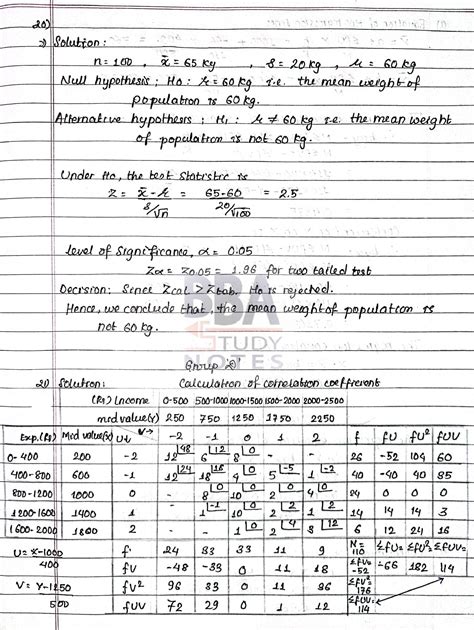 20)
⇒ Solution:
n = 100 , x̄ = 65 kg , s = 20 kg , μ = 60 kg
Null hypothesis ; H₀ : μ = 60 kg i.e. the mean weight of
population is 60 kg.
Alternative hypothesis ; H₁ : μ ≠ 60 kg i.e. the mean weight
of population is not 60 kg.
Under H₀, the test statistic is
Z = x̄ - μ = 65-60 = 2.5
s/√n 20/√100
level of significance, α = 0.05
Zα = Z0.05 = 1.96 for two tailed test
Decision: Since Zcal > Ztab, H₀ is rejected.
Hence, we conclude that, the mean weight of population is
not 60 kg.
BBA
STUDY
NOTES
Group 'D'
21) Solution: Calculation of correlation coefficient
(Rs) Income 0-500 500-1000 1000-1500 1500-2000 2000-2500
mid value(Y) 250 750 1250 1750 2250
Exp.(Rs) Mid value(X) U↓ V→ -2 -1 0 1 2 f fU fU² fUV
0-400 200 -2 12 48 6 12 8 0 - - 26 -52 104 60
400-800 600 -1 12 24 18 18 4 0 5 -5 1 -2 40 -40 40 35
800-1200 1000 0 - 8 0 10 0 2 0 4 0 24 0 0 0
1200-1600 1400 1 - 1 -1 10 0 2 2 1 2 14 14 14 3
1600-2000 1800 2 - - 1 0 2 4 3 12 6 12 24 16
U = X-1000 f 24 33 33 11 9 N = 110 ΣfU= ΣfU²= ΣfUV=
400 fV -48 -33 0 11 18 ΣfV= -52 -66 182 114
V = Y-1250 fV² 96 33 0 11 36 ΣfV²= 176
500 fUV 72 29 0 1 12 ΣfUV= 114